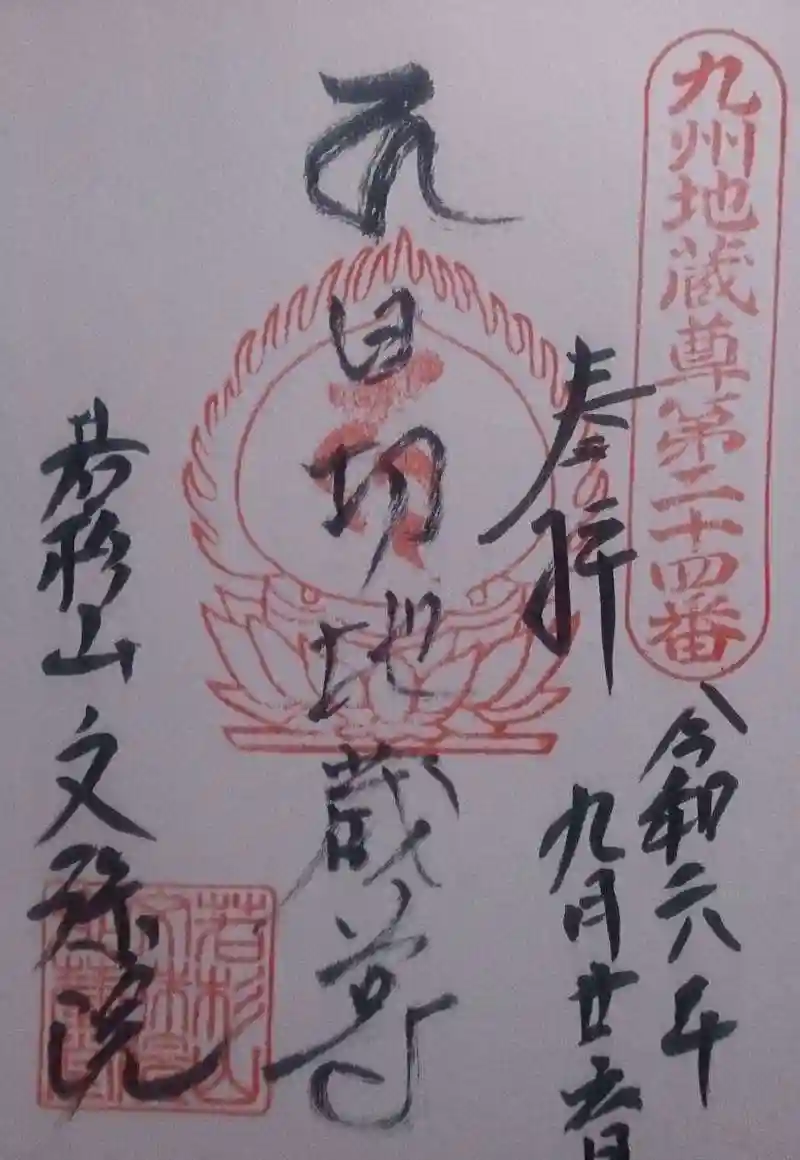 九州地蔵尊第二十四番
奉拝
令和六年
九月廿六日
日切地蔵尊
若杉山文殊院
若杉山